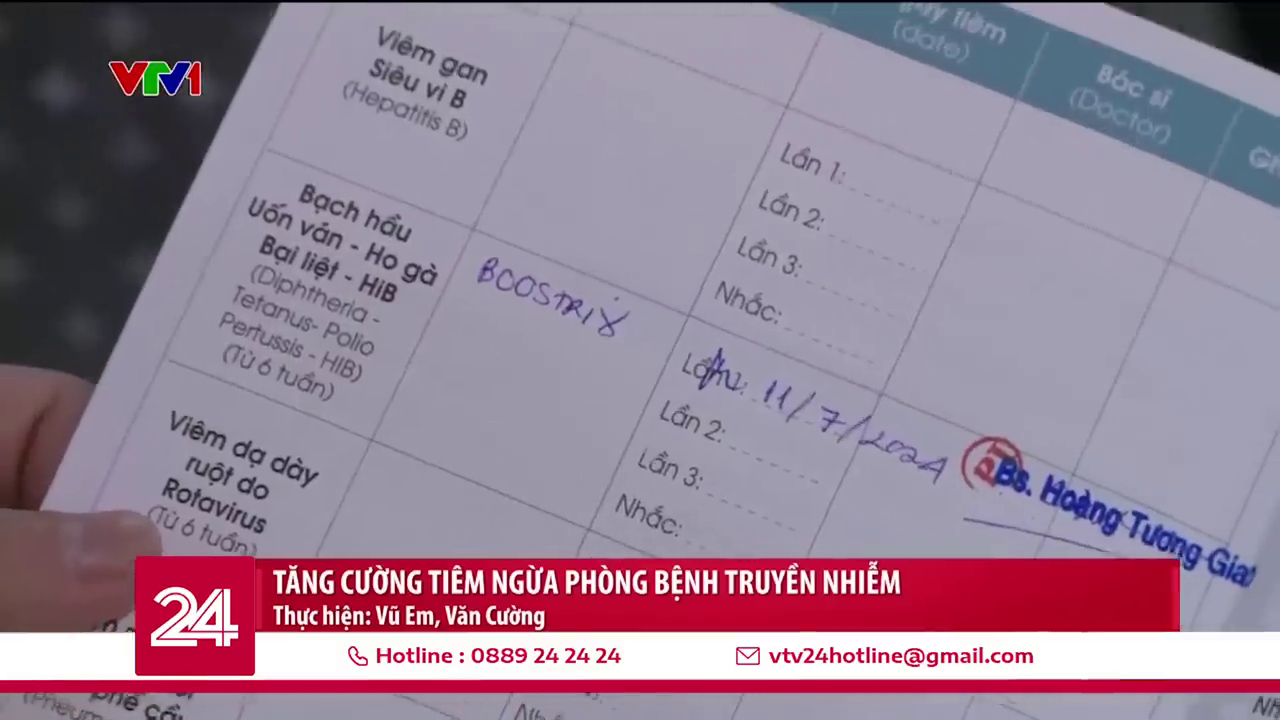 VTV1
(date)
Bác sĩ
(Doctor)
Viêm gan
Siêu vi B
(Hepatitis B)
Lần 1:
Lần 2:
Lần 3:
Nhắc:
Bạch hầu
Uốn ván - Ho gà
Bại liệt - HiB
(Diphtheria -
Tetanus- Polio
Pertussis - HIB)
(Từ 6 tuần)
BOOSTRIX
11/7/2024
Lần 2:
Lần 3:
Nhắc:
Bs. Hoàng Tương Giai
Viêm dạ dày
ruột do
Rotavirus
(Từ 6 tuần)
24
TĂNG CƯỜNG TIÊM NGỪA PHÒNG BỆNH TRUYỀN NHIỄM
Thực hiện: Vũ Em, Văn Cường
Hotline : 0889 24 24 24
vtv24hotline@gmail.com